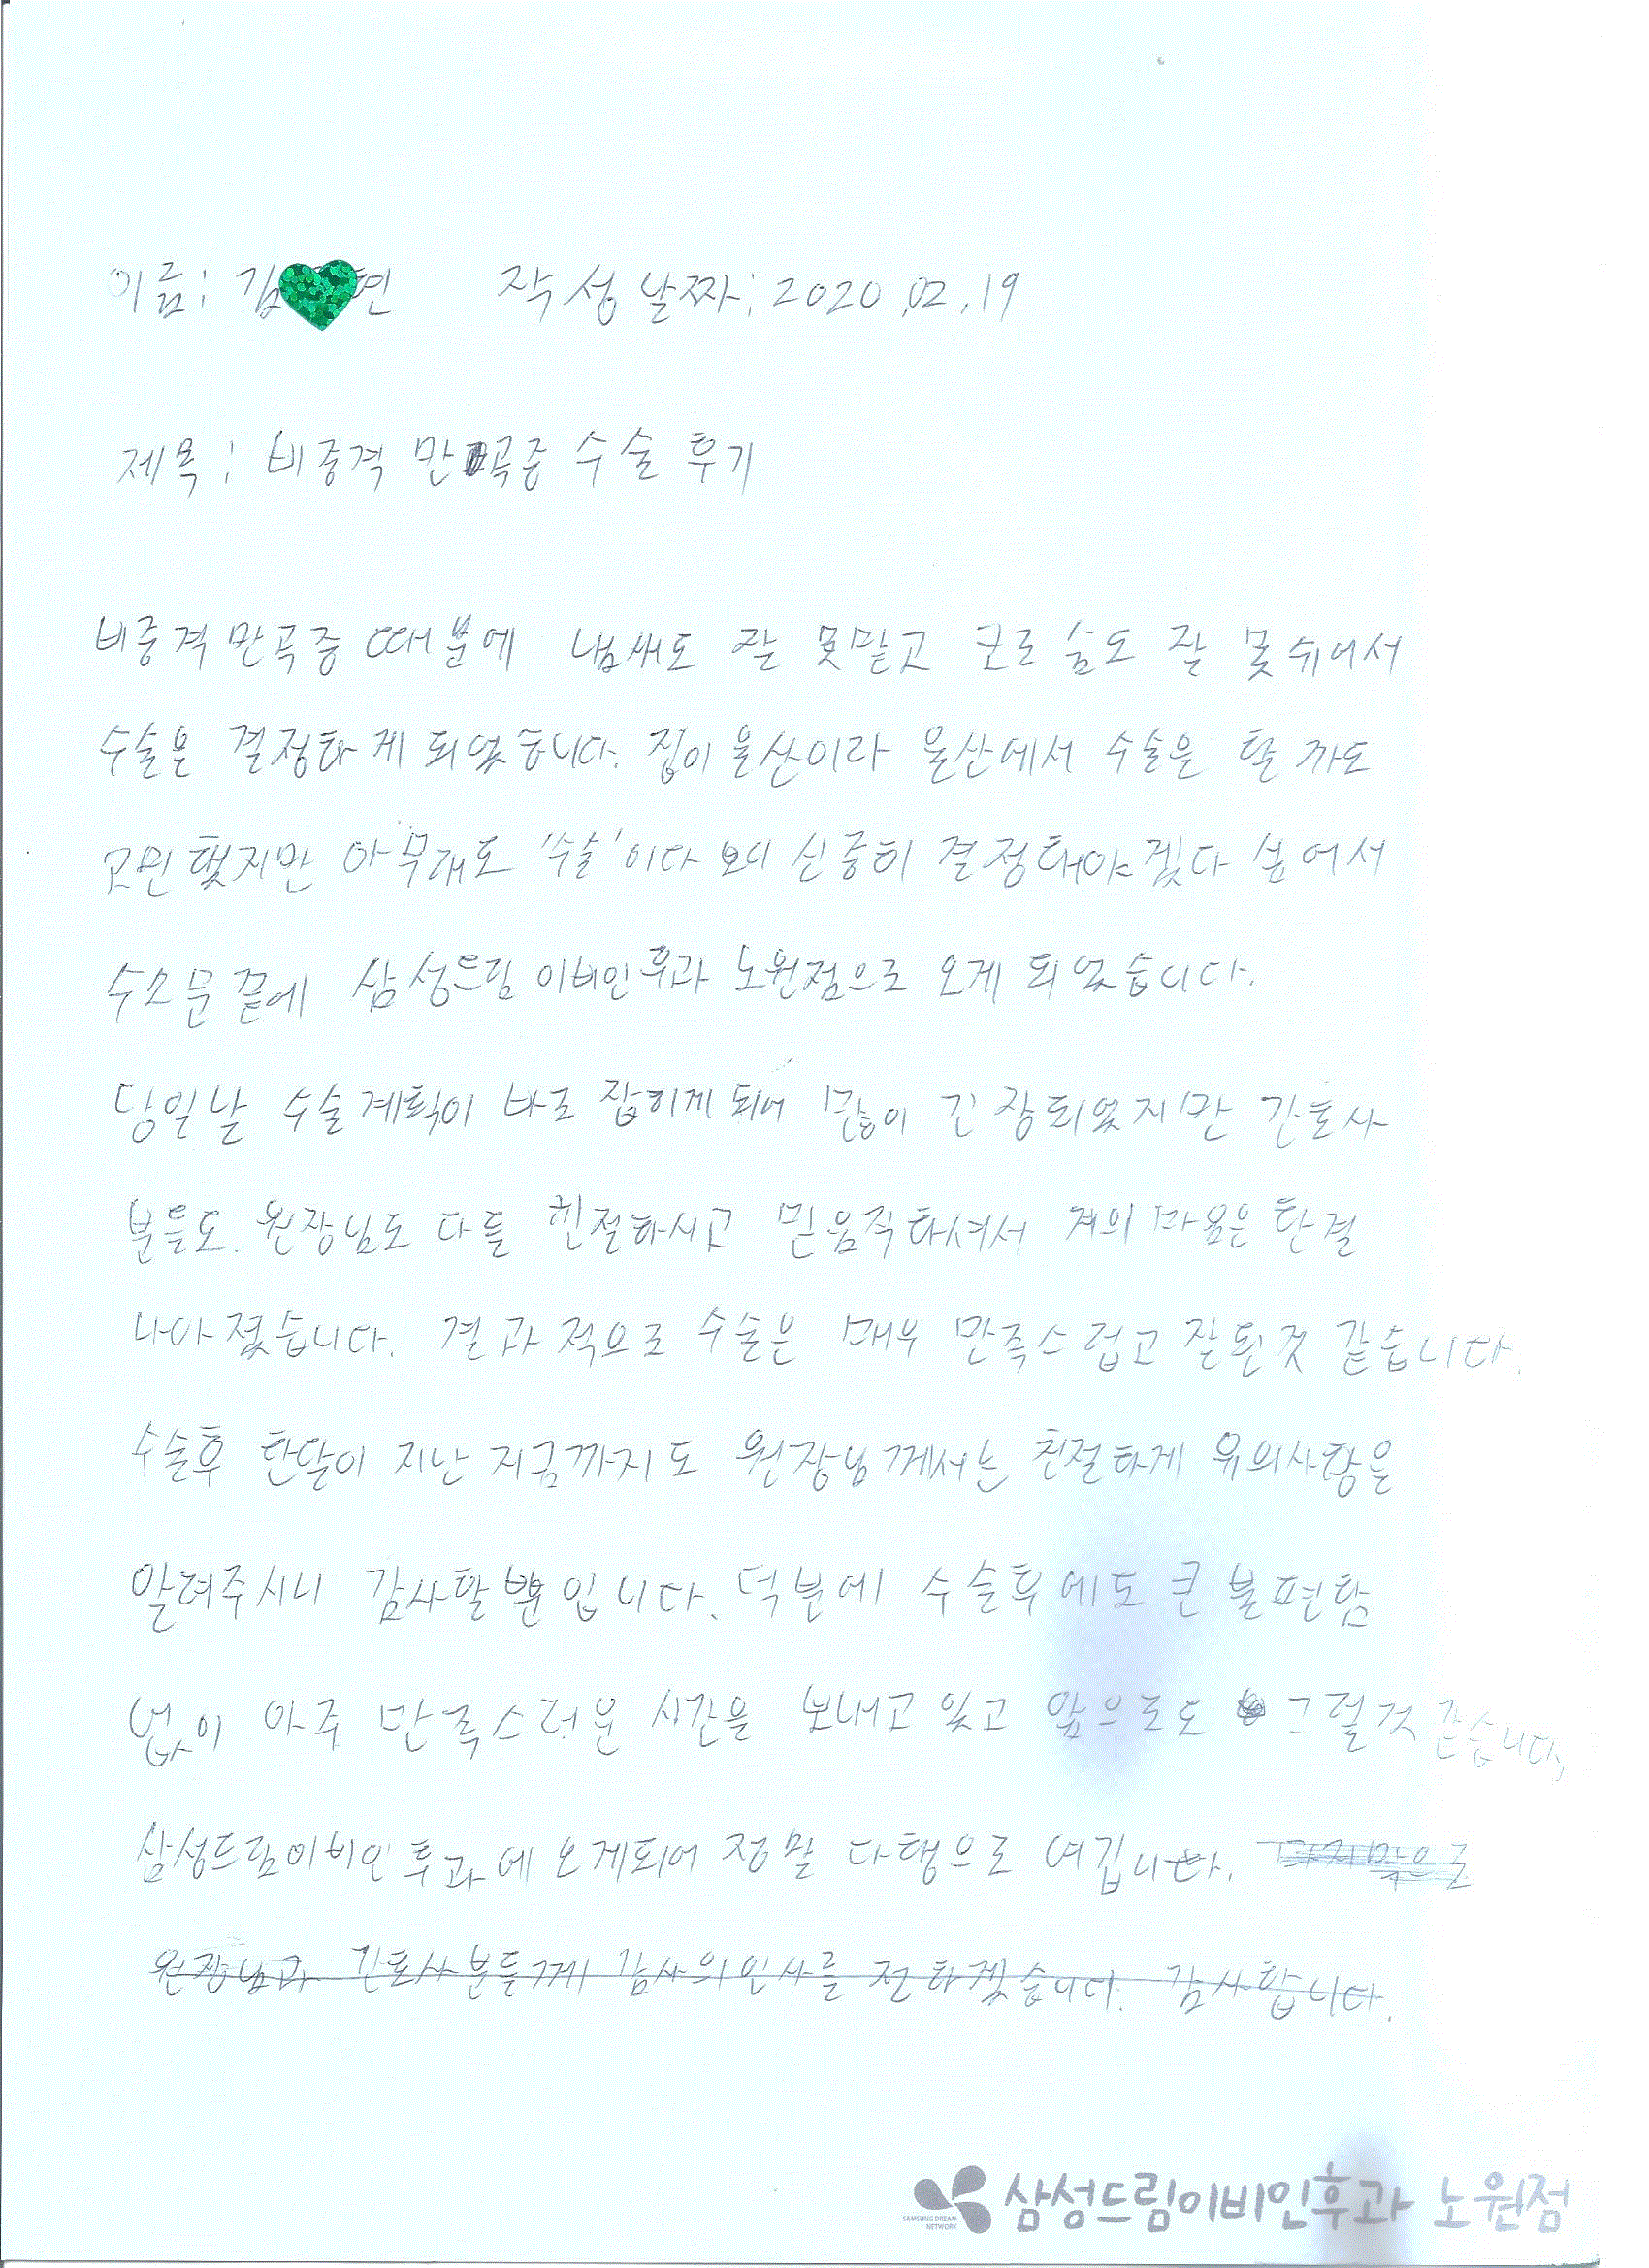 이름: 김 연 작성날짜: 2020.02.19
제목: 비중격 만곡증 수술 후기
비중격만곡증 때문에 냄새도 잘 못맡고 코로 숨도 잘 못쉬어서
수술을 결정하게 되었습니다. 집이 울산이라 울산에서 수술을 할 까도
고민했지만 아무래도 '수술'이다 보니 신중히 결정해야겠다 싶어서
수소문 끝에 삼성드림 이비인후과 노원점으로 오게 되었습니다.
당일날 수술계획이 바로 잡히게 되어 많이 긴장되었지만 간호사
분들도 원장님도 다들 친절하시고 믿음직하셔서 저의 마음은 한결
나아졌습니다. 결과적으로 수술은 매우 만족스럽고 잘된것 같습니다.
수술후 한달이 지난 지금까지도 원장님께서는 친절하게 유의사항을
알려주시니 감사할 뿐입니다. 덕분에 수술후에도 큰 불편함
없이 아주 만족스러운 시간을 보내고 있고 앞으로도 그럴것 같습니다.
삼성드림이비인후과에 오게되어 정말 다행으로 여깁니다. 마지막으로
원장님과 간호사분들께 감사의인사를 전하겠습니다. 감사합니다.
삼성드림이비인후과 노원점
SAMSUNG DREAM
NETWORK